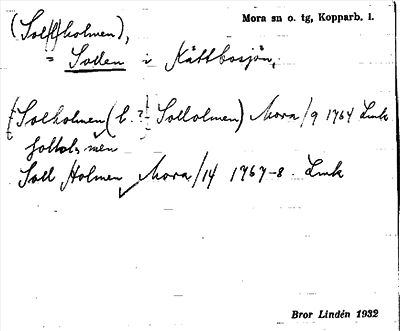 Mora sn o. tg, Kopparb. l.
(Sol(l)holmen),
= Sollen i Kättbosjön,
{Solholmen (l. ?} = Sollolmen) Mora/9 1764 Lmk
sollolsmen
Soll Holmen Mora/14 1767-8. Lmk
Bror Lindén 1932